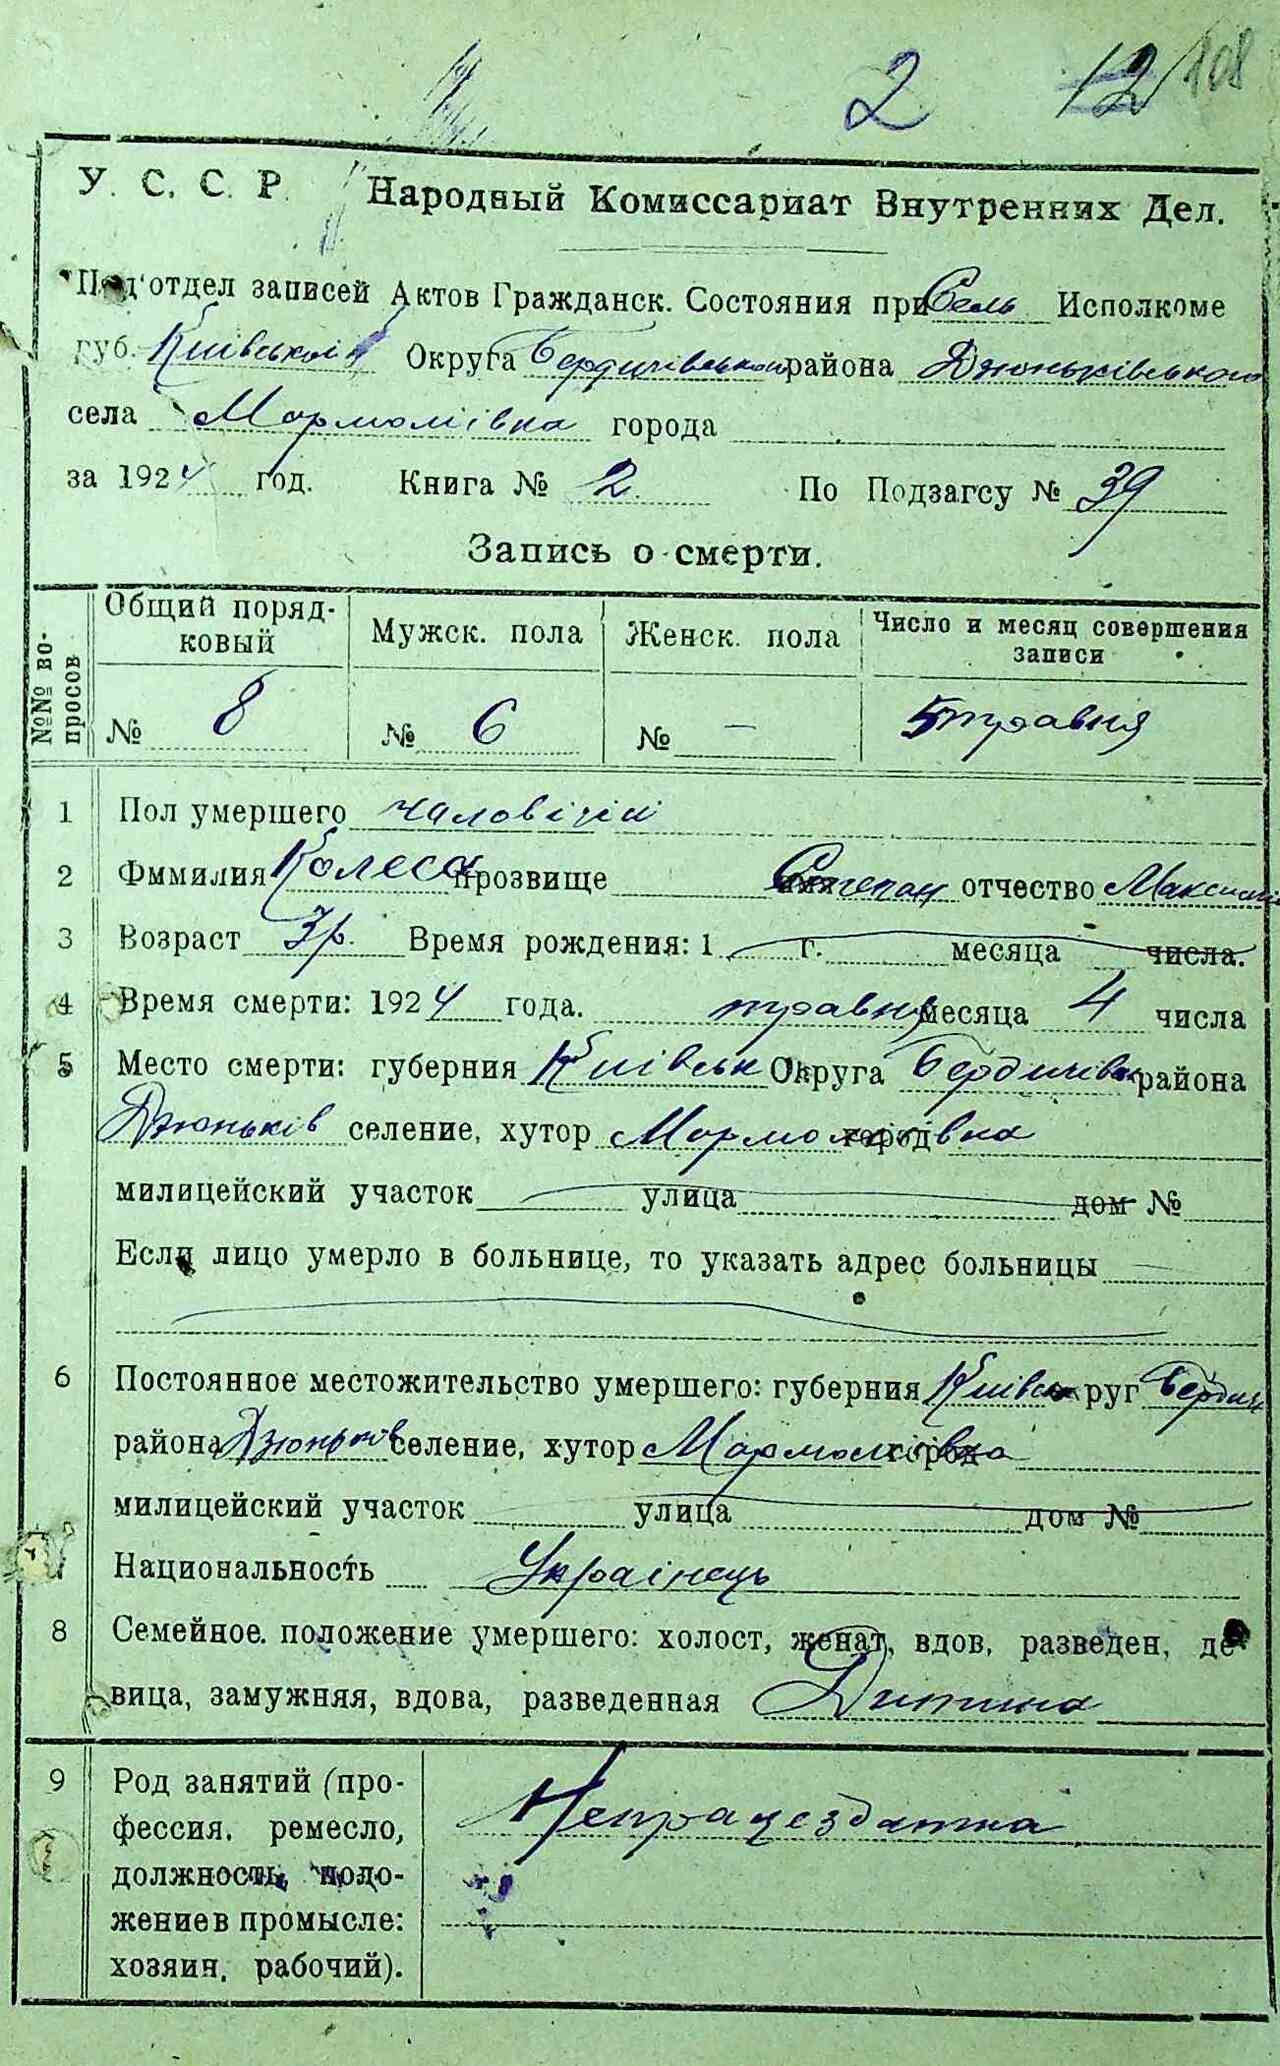 2 12 108
У. С. С. Р. Народный Комиссариат Внутренних Дел.
Под'отдел записей Актов Гражданск. Состояния при Сель Исполкоме
губ. Київської Округа Бердичівської района Дзюньківського
села Мармоліївка города
за 1924 год. Книга № 2 По Подзагсу № 39
Запись о смерти.
№№ вопросов
Общий порядковый Мужск. пола Женск. пола Число и месяц совершения записи
№ 8 № 6 № — 5 травня
1 Пол умершего чаловічий
2 Фммилия Колеса прозвище имя Степан отчество Максимів
3 Возраст 3 р. Время рождения: 1 г. месяца числа.
4 Время смерти: 1924 года. травня месяца 4 числа
5 Место смерти: губерния Київськ Округа Бердичівськ района
Дзюньків селение, хутор Мармоліївка город
милицейский участок улица дом №
Если лицо умерло в больнице, то указать адрес больницы
6 Постоянное местожительство умершего: губерния Київськ округ Бердич
района Дзюньков селение, хутор Мармоліївка город
милицейский участок улица дом №
Национальность Українець
8 Семейное. положение умершего: холост, женат, вдов, разведен, де
вица, замужняя, вдова, разведенная Дитина
9 Род занятий (про-
фессия, ремесло, Непрацездатна
должность, поло-
жение в промысле:
хозяин, рабочий).